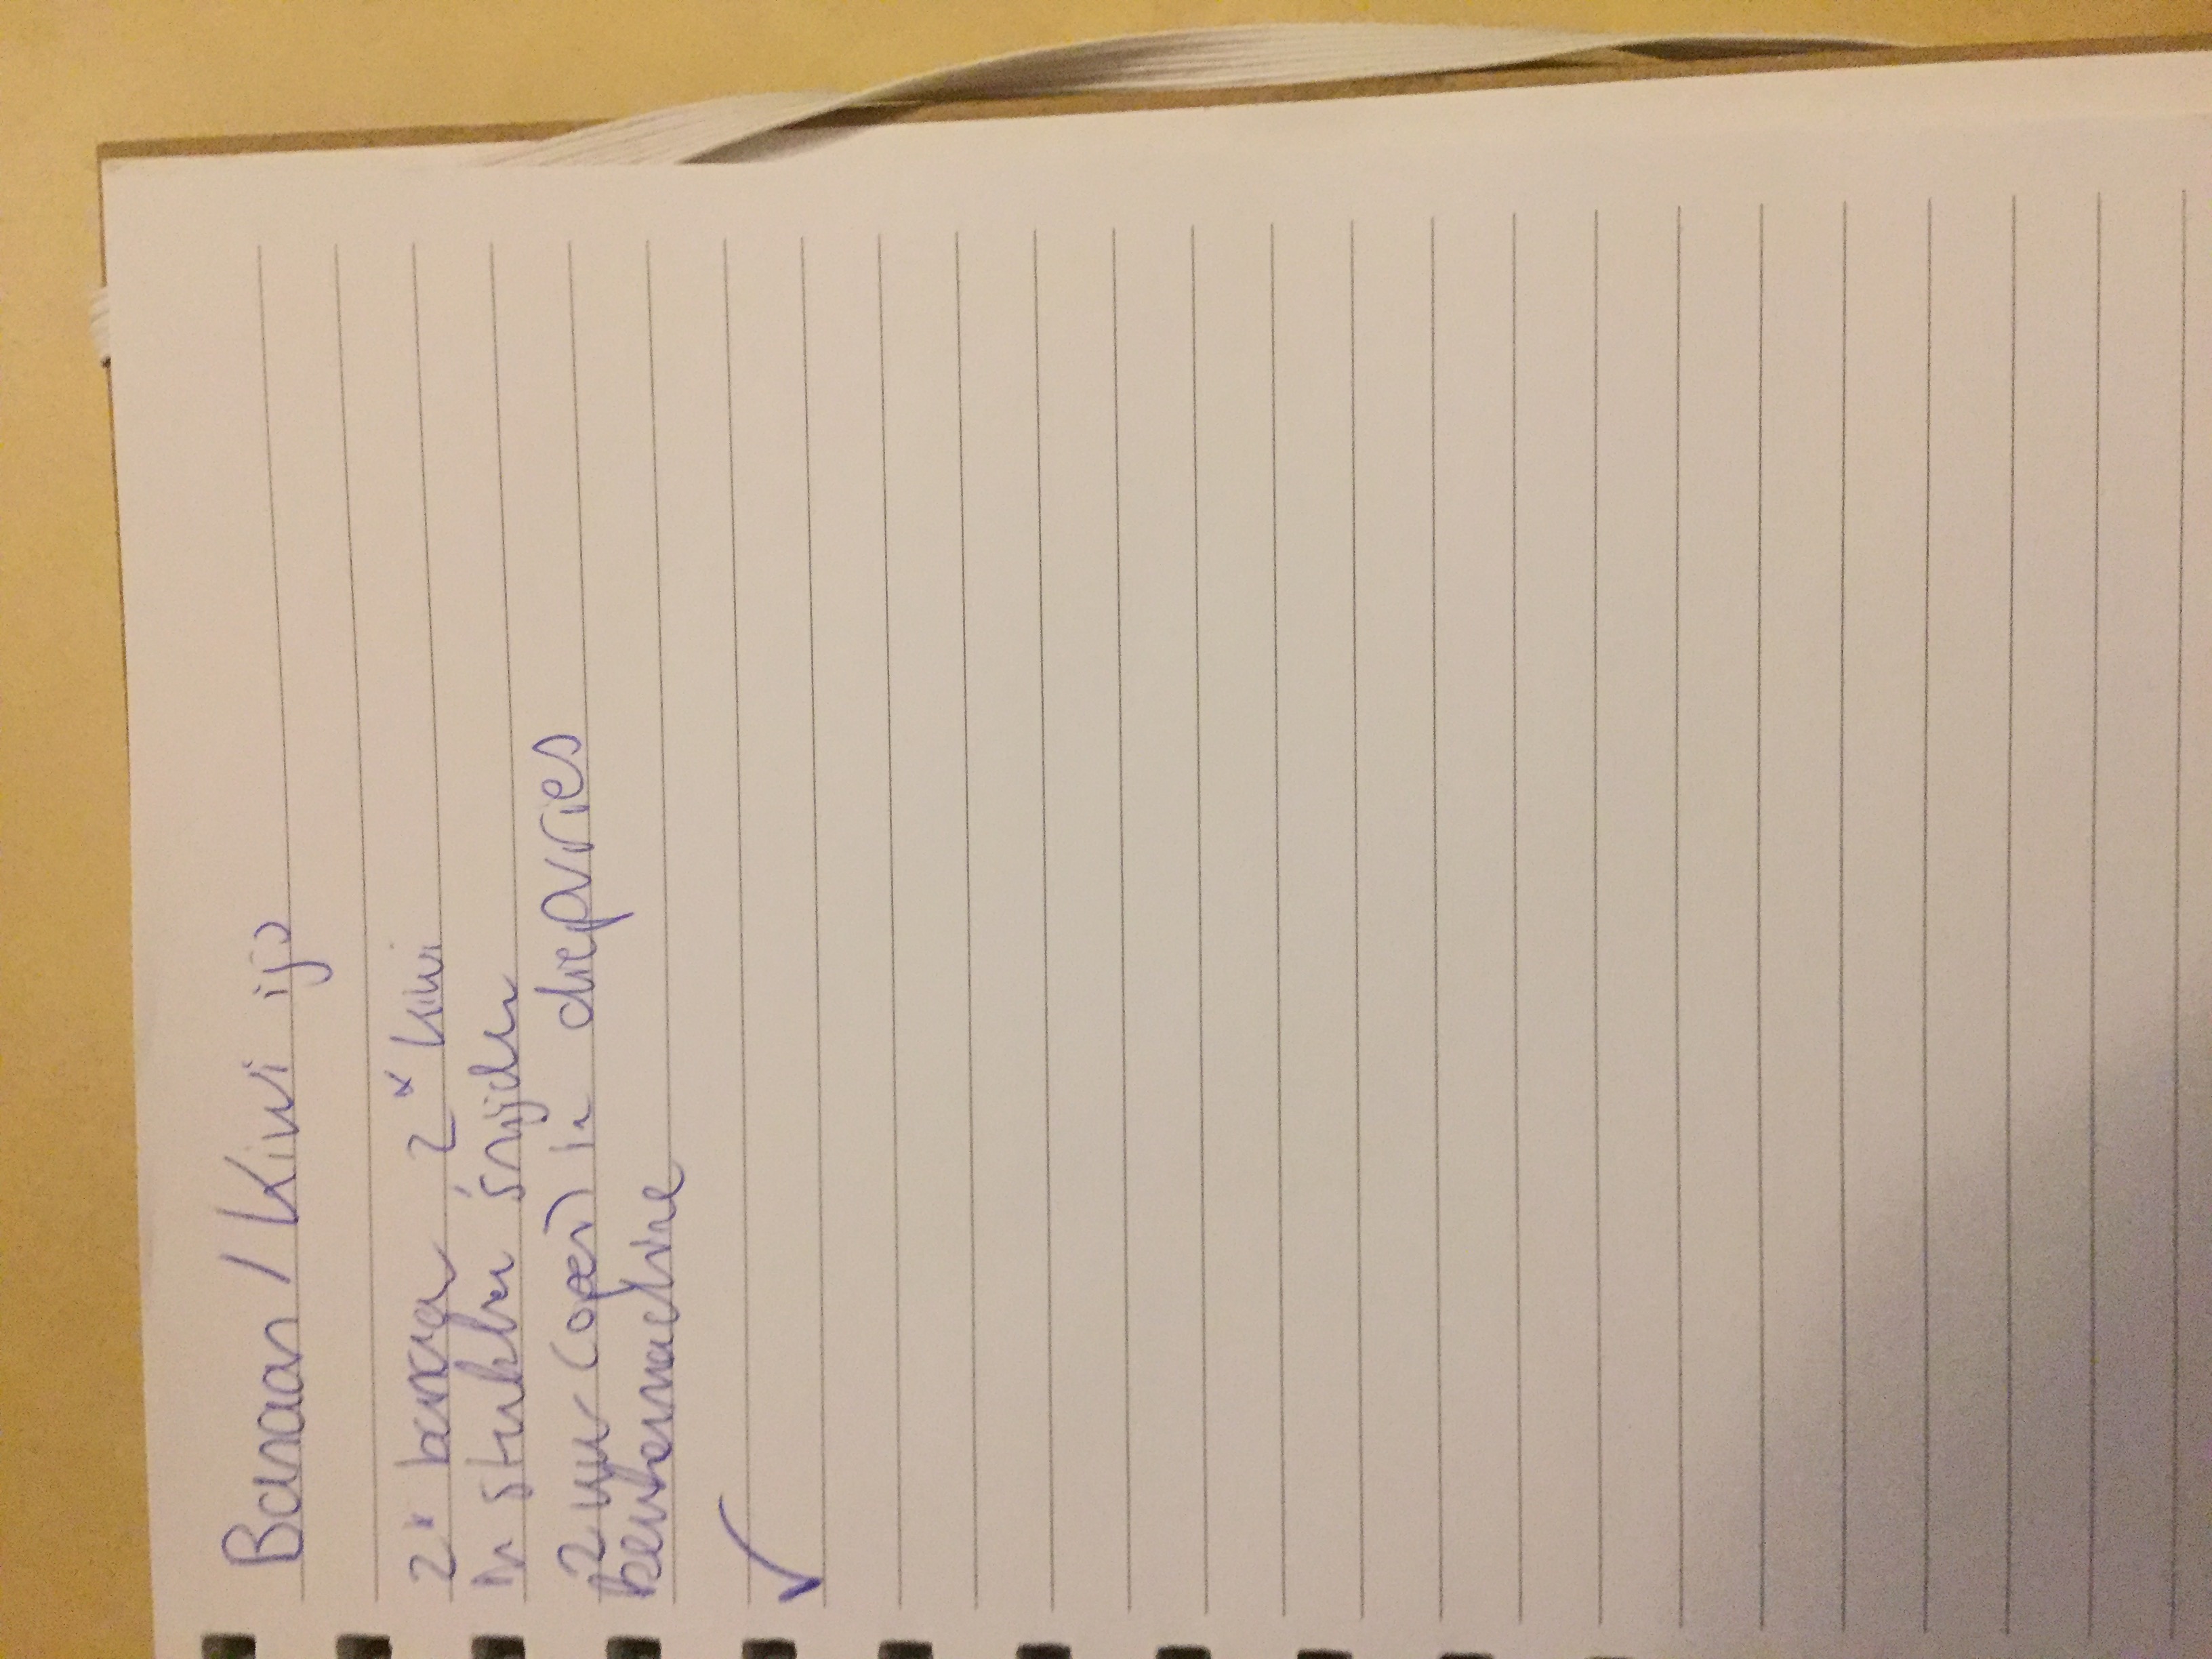 Banaan / Kiwi ijs
2x banaan, 2x kiwi
in stukken snijden
2 uur (open) in diepvries
keukenmachine
✓